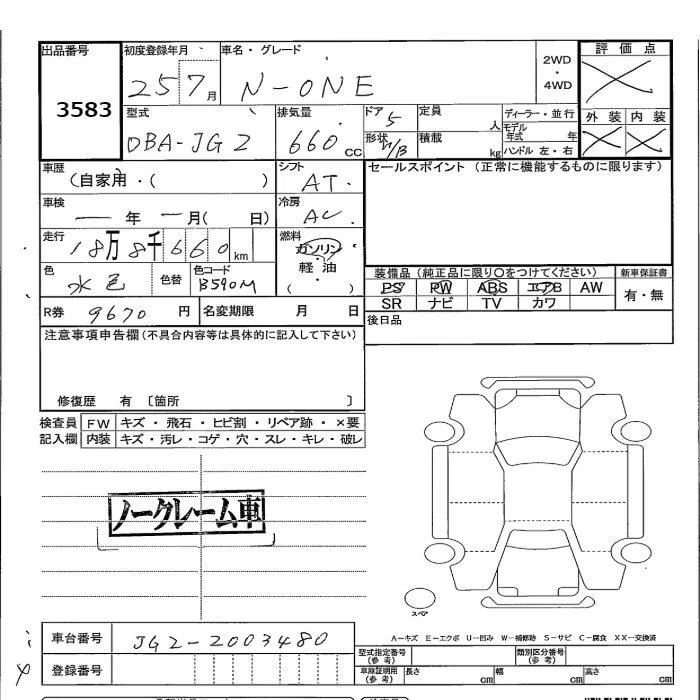 出品番号 初度登録年月 車名・グレード 2WD・4WD 評価点
3583 25 7月 N-ONE
型式 排気量 ドア 5 定員 人 ディーラー・並行 外装 内装
DBA-JG2 660cc 形状 H/B 積載 kg モデル年式 年 ハンドル 左・右
車歴 (自家用・( ) シフト AT セールスポイント(正常に機能するものに限ります)
車検 ー年 ー月( 日) 冷房 AC
走行 18万8千660km 燃料 ガソリン・軽油・( )
色 水色 色替 色コード B590M
装備品(純正品に限り○をつけてください) 新車保証書
PS PW ABS エアB AW 有・無
SR ナビ TV カワ
R券 9670円 名変期限 月 日 後日品
注意事項申告欄(不具合内容等は具体的に記入して下さい)
修復歴 有 〔箇所 〕
検査員記入欄 FW キズ・飛石・ヒビ割・リペア跡・×要
内装 キズ・汚レ・コゲ・穴・スレ・キレ・破レ
ノークレーム車
スペア
A−キズ E−エクボ U−凹み W−補修跡 S−サビ C−腐食 XX−交換済
車台番号 JG2-2003480
登録番号
型式指定番号(参考) 類別区分番号(参考)
車検証明用(参考) 長さ cm 幅 cm 高さ cm